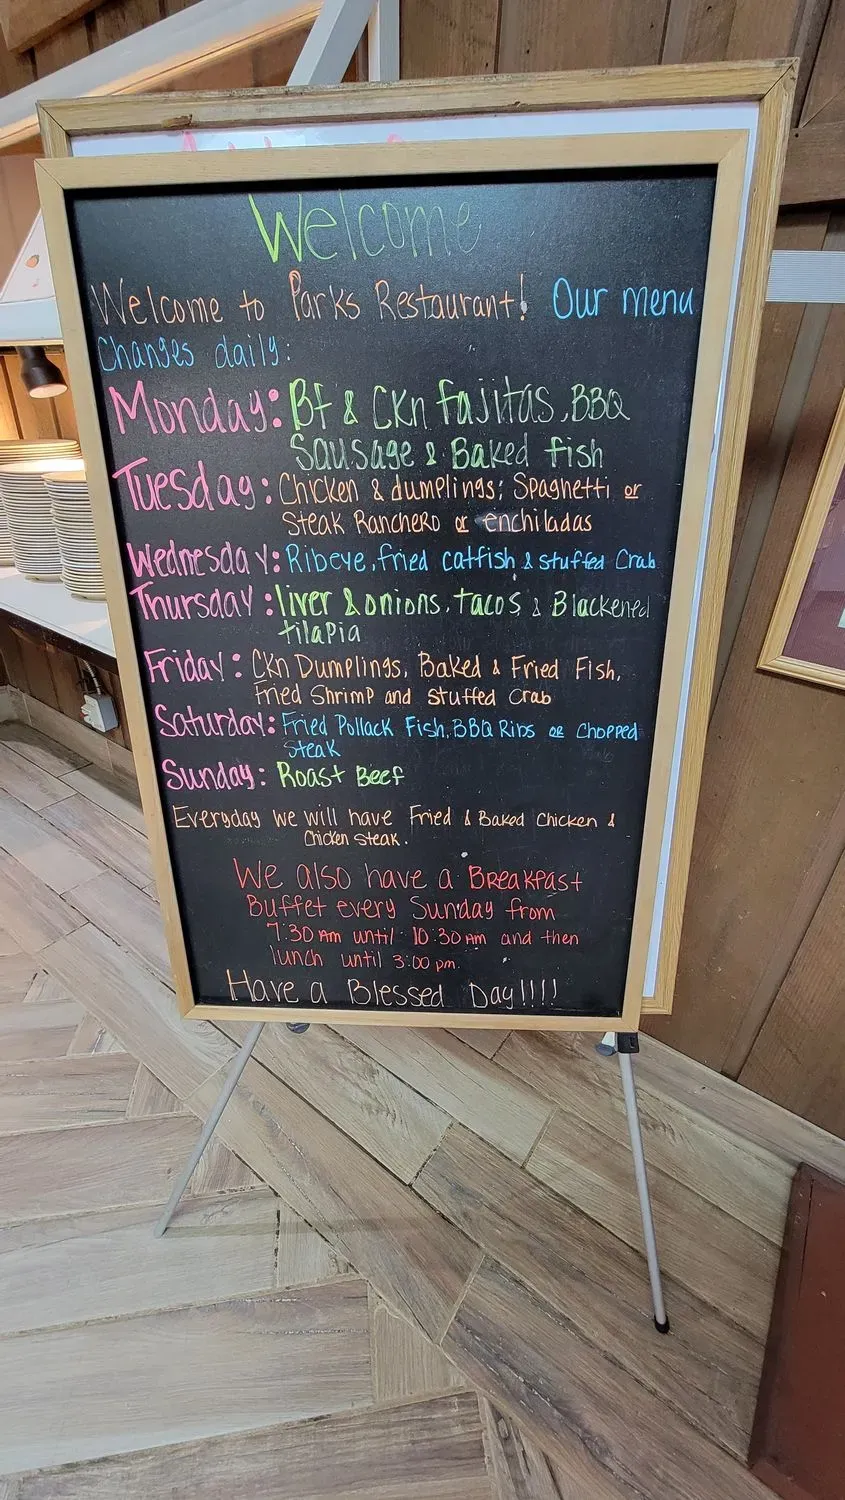 Welcome
Welcome to Parks Restaurant! Our menu
Changes daily:
Monday: Bf & CKn fajitas, BBQ
Sausage & Baked fish
Tuesday: Chicken & dumplings; Spaghetti or
Steak Ranchero or enchiladas
Wednesday: Ribeye, fried catfish & stuffed Crab
Thursday: liver & onions, tacos & Blackened
tilapia
Friday: CKn Dumplings, Baked & Fried Fish,
Fried Shrimp and stuffed Crab
Saturday: Fried Pollack Fish, BBQ Ribs or Chopped
Steak
Sunday: Roast Beef
Everyday we will have Fried & Baked Chicken &
Chicken Steak.
We also have a Breakfast
Buffet every Sunday from
7:30 Am until 10:30 Am and then
lunch until 3:00 pm.
Have a Blessed Day!!!!